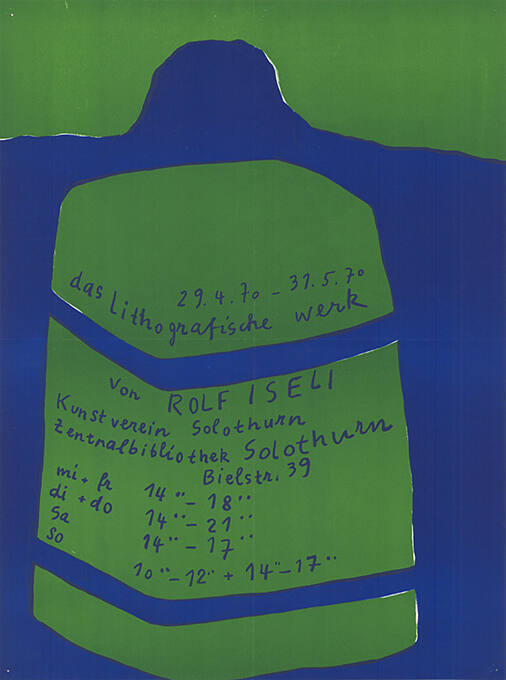 29.4.70 – 31.5.70
das lithografische werk
von ROLF ISELI
Kunstverein Solothurn
Zentralbibliothek Solothurn
Bielstr. 39
mi + fr 14°° – 18°°
di + do 14°° – 21°°
Sa 14°° – 17°°
So 10°° – 12°° + 14°° – 17°°